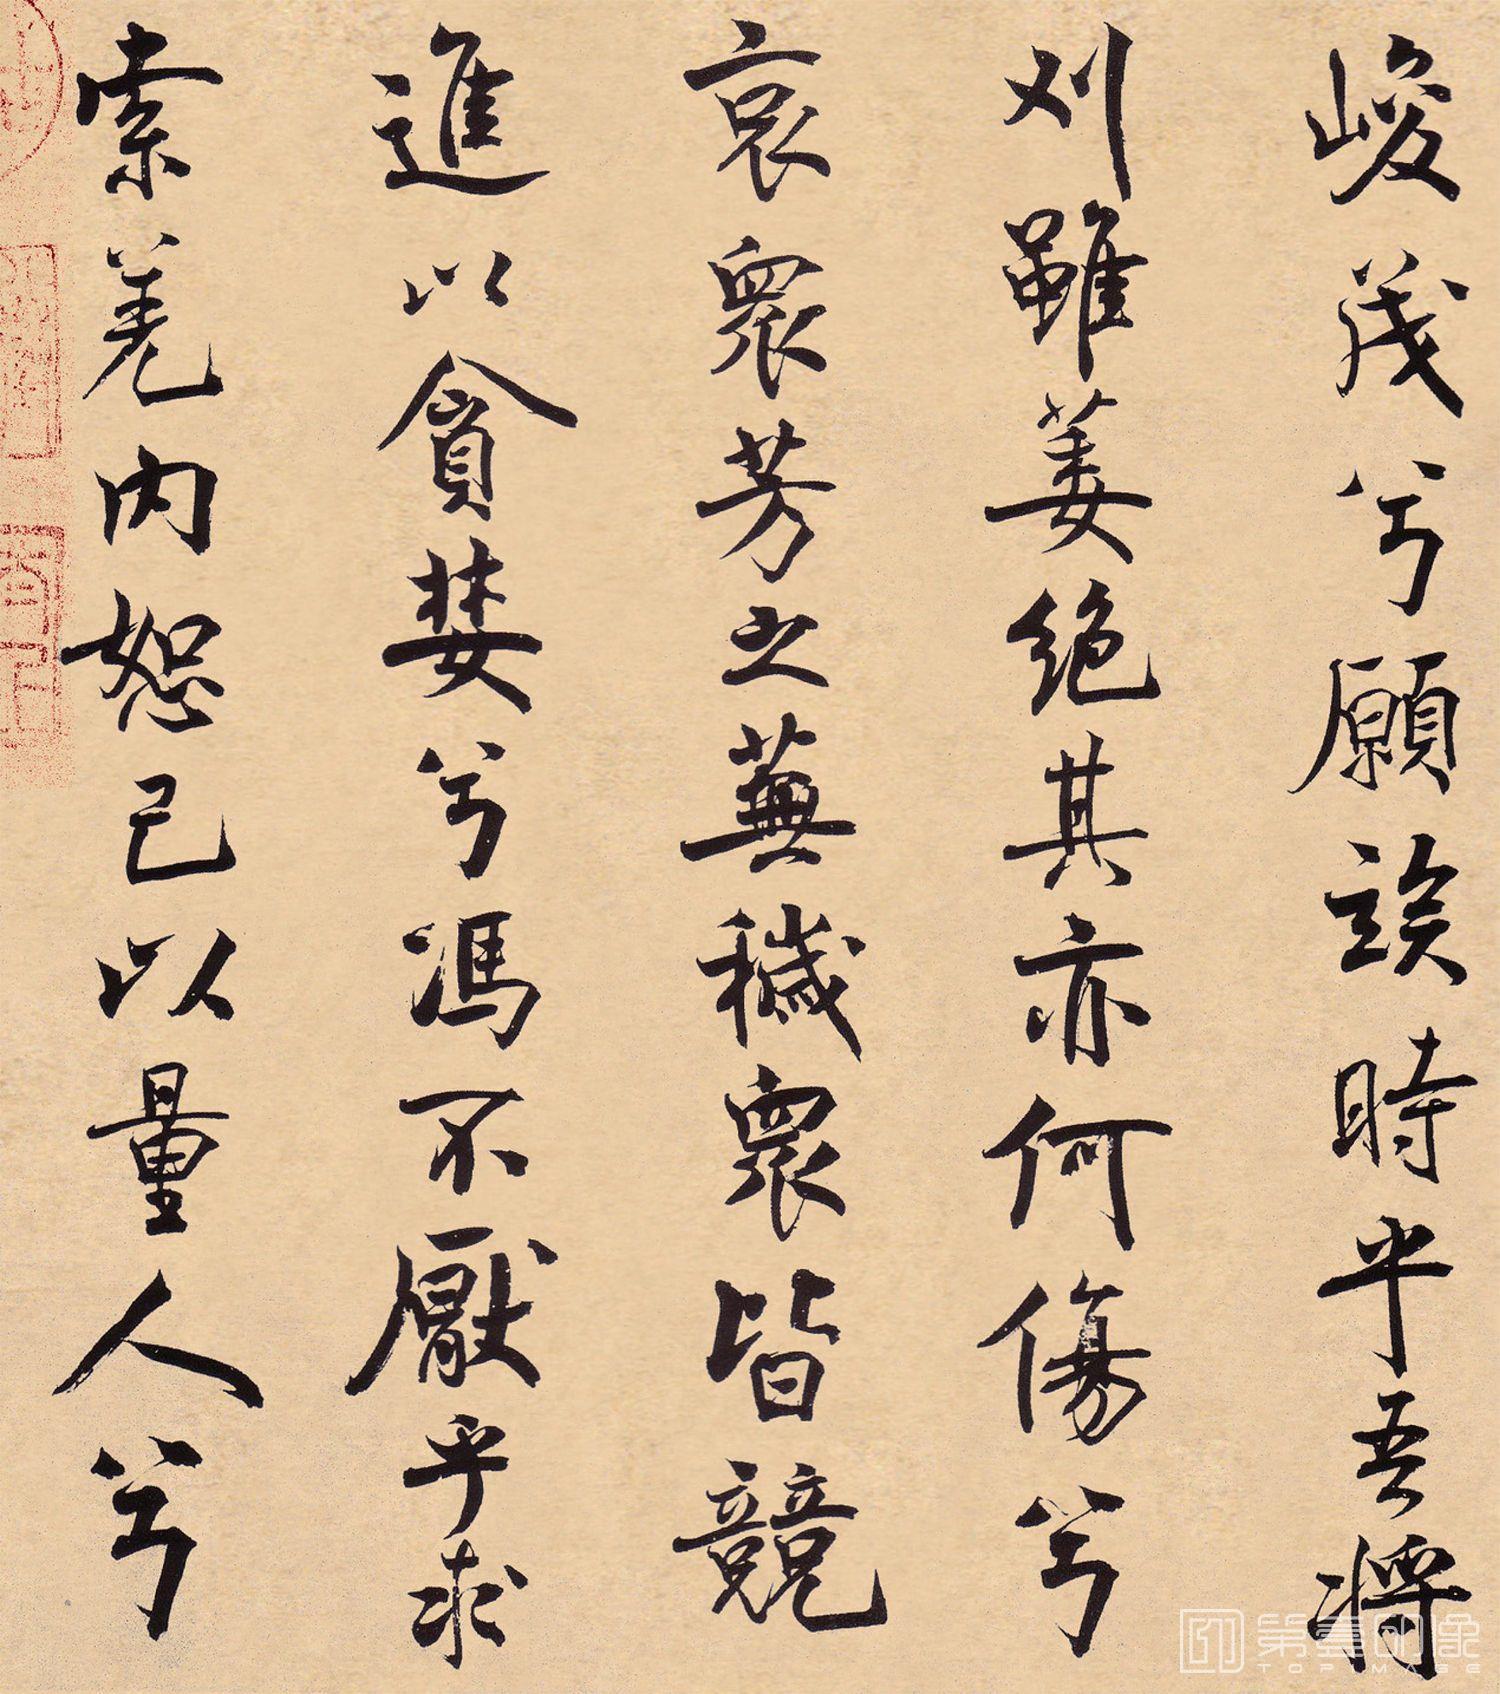 峻茂兮願竢時乎吾將
刈雖萎絕其亦何傷兮
哀衆芳之蕪穢衆皆競
進以貪婪兮馮不厭乎求
索羌內恕己以量人兮
第壹印像
TOPIMAGE